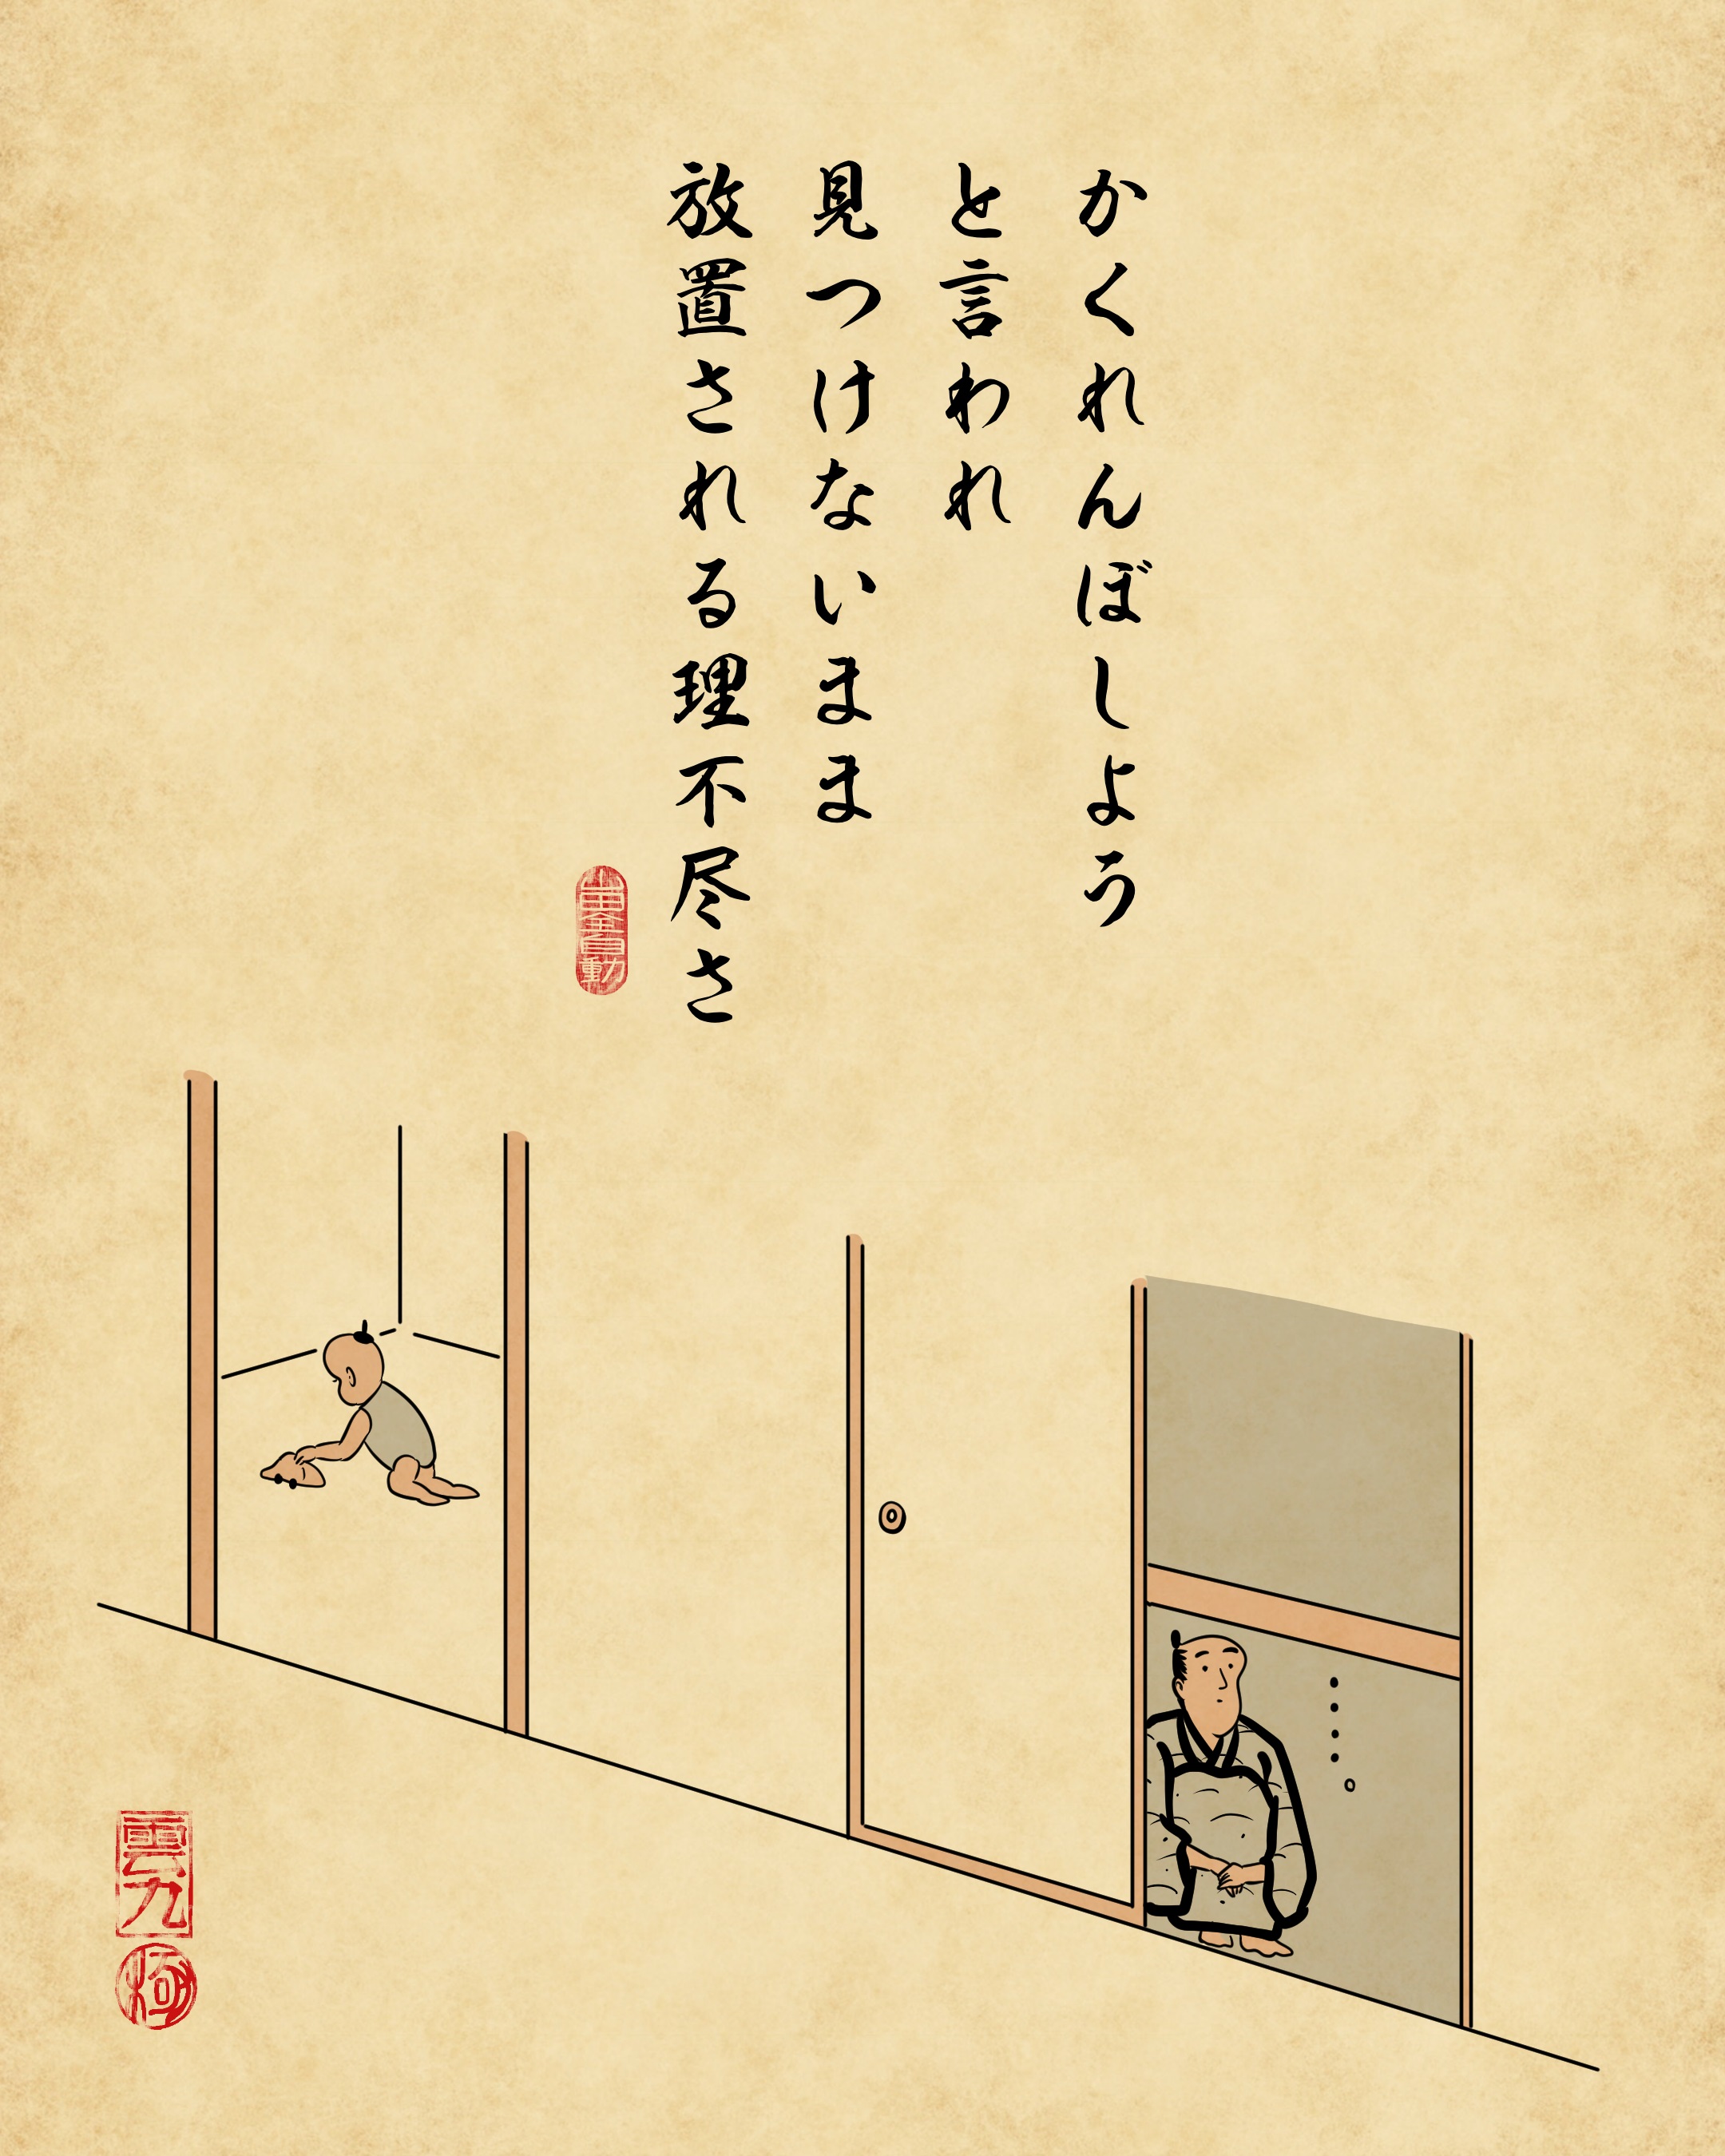 かくれんぼしよう
と言われ
見つけないまま
放置される理不尽さ
山田全自動
雲九
極